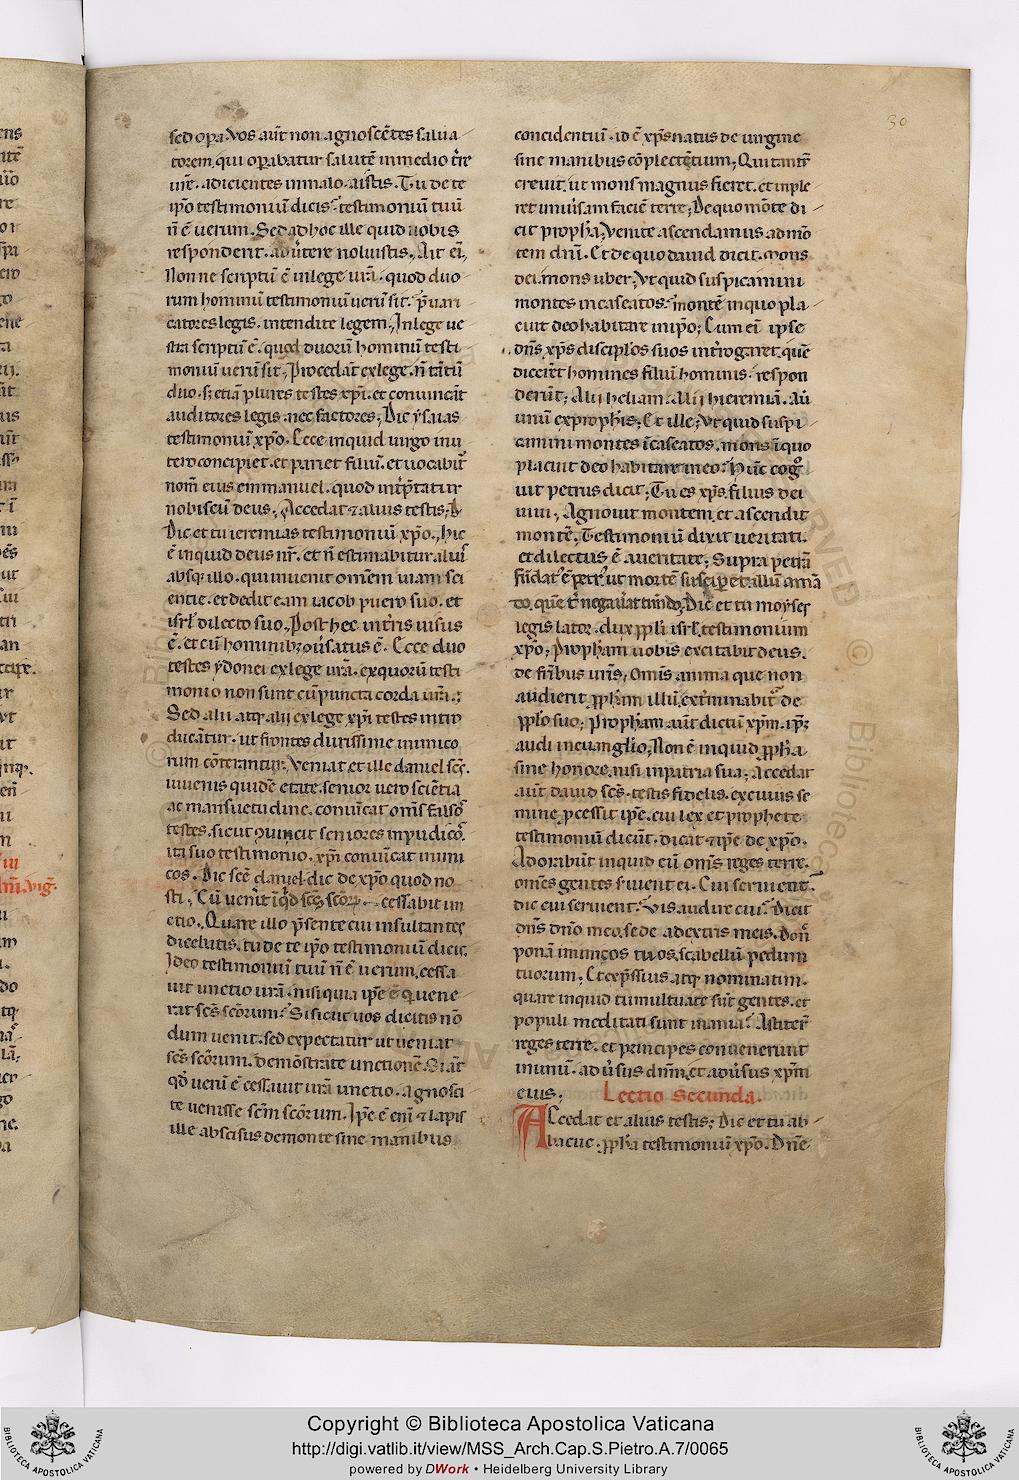 30
sed op̲a. vos aut̅ non agnoscẽtes salua
torem. qui op̲abatur salutẽ in medio t̅re
ur̅e. adicientes in malo. aistis. Tu de te
ip̅o testimoniũ dicis? testimoniũ tuũ
n̅ ẽ uerum. Sed ad hoc ille quid uobis
responderit. aduertere noluistis. Ait ei̅,
Nonne scriptũ ẽ in lege ur̅a. quod duo
rum hominũ testimoniũ uerũ sit. p̅uari
catores legis. intendite legem. In lege ue
stra scriptũ ẽ. quod duorũ hominũ testi
moniũ uerũ sit, Procedãt ex lege. n̅ tãtũ
duo. s; etiã plures testes xp̅i. et conuincãt
auditores legis. nec factores; Dic ysaias
testimoniũ xp̅o. Ecce inquid uirgo in u
tero concipiet. et pariet filiũ. et uocabit̃
nom̅ eius emmanuel. quod int̃p̃tatur
nobiscũ deus; Accedat & alius testis;
Dic et tu ieremias testimoniũ xp̅o. hic
ẽ inquid deus nr̅. et n̅ estimabitur alius
absq; illo. qui inuenit om̅em uiam sci
entie. et dedit eam iacob puero suo. et
isr̅l dilecto suo. Post hec in t̅ris uisus
ẽ. et cũ hominibꝫ ɔuersatus ẽ. Ecce duo
testes ydonei ex lege ur̅a. ex quorũ testi
monio non sunt cõpuncta corda ur̅a.;
Sed alii atq; alii ex lege xp̅i testes intro
ducãtur. ut frontes durissime inimico
rum cõterantur, Veniat et ille daniel sc̅s.
iuuenis quidẽ etate. senior uero sciẽtia
ac mansuetudine. conuĩcat om̅s falsos
testes. sicut ɔuincit seniores inpudicos.
ita suo testimonio. xp̅i conuĩcat inimi
cos. Dic sc̅e daniel. dic de xp̅o quod no
sti, Cũ uenerit iq̅d sc̅s sc̅orꝫ cessabit un
ctio. Quare illo p̅sente cui insultantes
dicebatis. tu de te ip̅o testimoniũ dicis.
Ideo testimoniũ tuũ n̅ ẽ uerum. cessa
uit unctio ur̅a. nisi quia ip̅e ẽ q̅ uene
rat sc̅s sc̅orum? Si sicut uos dicitis nõ
dum uenit. sed expectatur ut ueniat
sc̅s sc̅orum. demõstrate unctionẽ. Si aũt
qđ uerũ ẽ cessauit ur̅a unctio. agnosci
te uenisse sc̅m sc̅orum. Ip̅e ẽ eni̅ & lapis
ille abscisus de monte sine manibus
concidentiũ. iđ ẽ xp̅s natus de uirgine
sine manibus cõplectẽtium; Qui tantũ
creuit. ut mons magnus fieret. et imple
ret uniuersam faciẽ terre; De quo mõte di
cit proph̅a, Venite ascendamus ad mõ
tem dn̅i. Et de quo dauid dicit. mons
dei. mons uber, Vt quid suspicamini
montes incaseatos? montẽ in quo pla
cuit deo habitare in ip̅o; Cum ei̅ ipse
dn̅s xp̅s discip̅los suos int̃rogaret. quẽ
dicer̅et homines filiũ hominis. respon
derũt; Alii heliam. Alii hieremiã. Aũ
unũ ex proph̅is; Et ille; Vt quid suspi
camini montes ĩcaseatos. mons ĩ quo
placuit deo habitare in eo? Hũc cogno
uit petrus dicit; Tu es xp̅s filius dei
uiui, Agnouit montem et ascendit
montẽ, Testimoniũ dixit ueritati.
et dilectus ẽ a ueritate; Supra petrã
fũdat' ẽ petr' ut mortẽ susciperet illiũ amã
do, quẽ t̃ negauerat timẽdo, Dic et tu moyses
legis lator. dux pp̅li isr̅l. testimonium
xp̅o, Propham uobis excitabit deus.
de fr̅ibus ur̅is, omĩs anima que non
audierit pph̅am illũ, ext̃minabit̃ de
pp̅lo suo; proph̅am aũt dictũ xp̅m. ip̅m
audi in euanglio; Non ẽ inquid pph̅a
sine honore. nisi in patria sua; Accedat
aũt dauid sc̅s. testis fidelis. ex cuius se
mine p̱cessit ip̅e. cui lex et prophete
testimoniũ dicũt. dicat & ip̅e de xp̅o.
Adorabũt inquid eũ om̅s reges terre.
om̅es gentes seruient ei. Cui seruient?
dic cui seruient. Vis audire cui? Dicit
dn̅s dn̅o meo. sede a dextris meis. Don̅
ponã inimicos tuos. scabellũ pedum
tuorum. Et exp̃ssius. atq; nominatim.
quare inquid tumultuate sũt gentes. et
populi meditati sunt inania? Astiter̅
reges terre. et principes conuenerunt
in unũ. aduersus dn̅m. et aduersus xp̅m
eius; Lectio secunda.
Accedat et alius testis; Dic et tu ab
bacuc pph̅a testimoniũ xp̅o. Dn̅e
Copyright © Biblioteca Apostolica Vaticana
http://digi.vatlib.it/view/MSS_Arch.Cap.S.Pietro.A.7/0065
powered by DWork • Heidelberg University Library
BIBLIOTECA APOSTOLICA VATICANA
BIBLIOTECA APOSTOLICA VATICANA